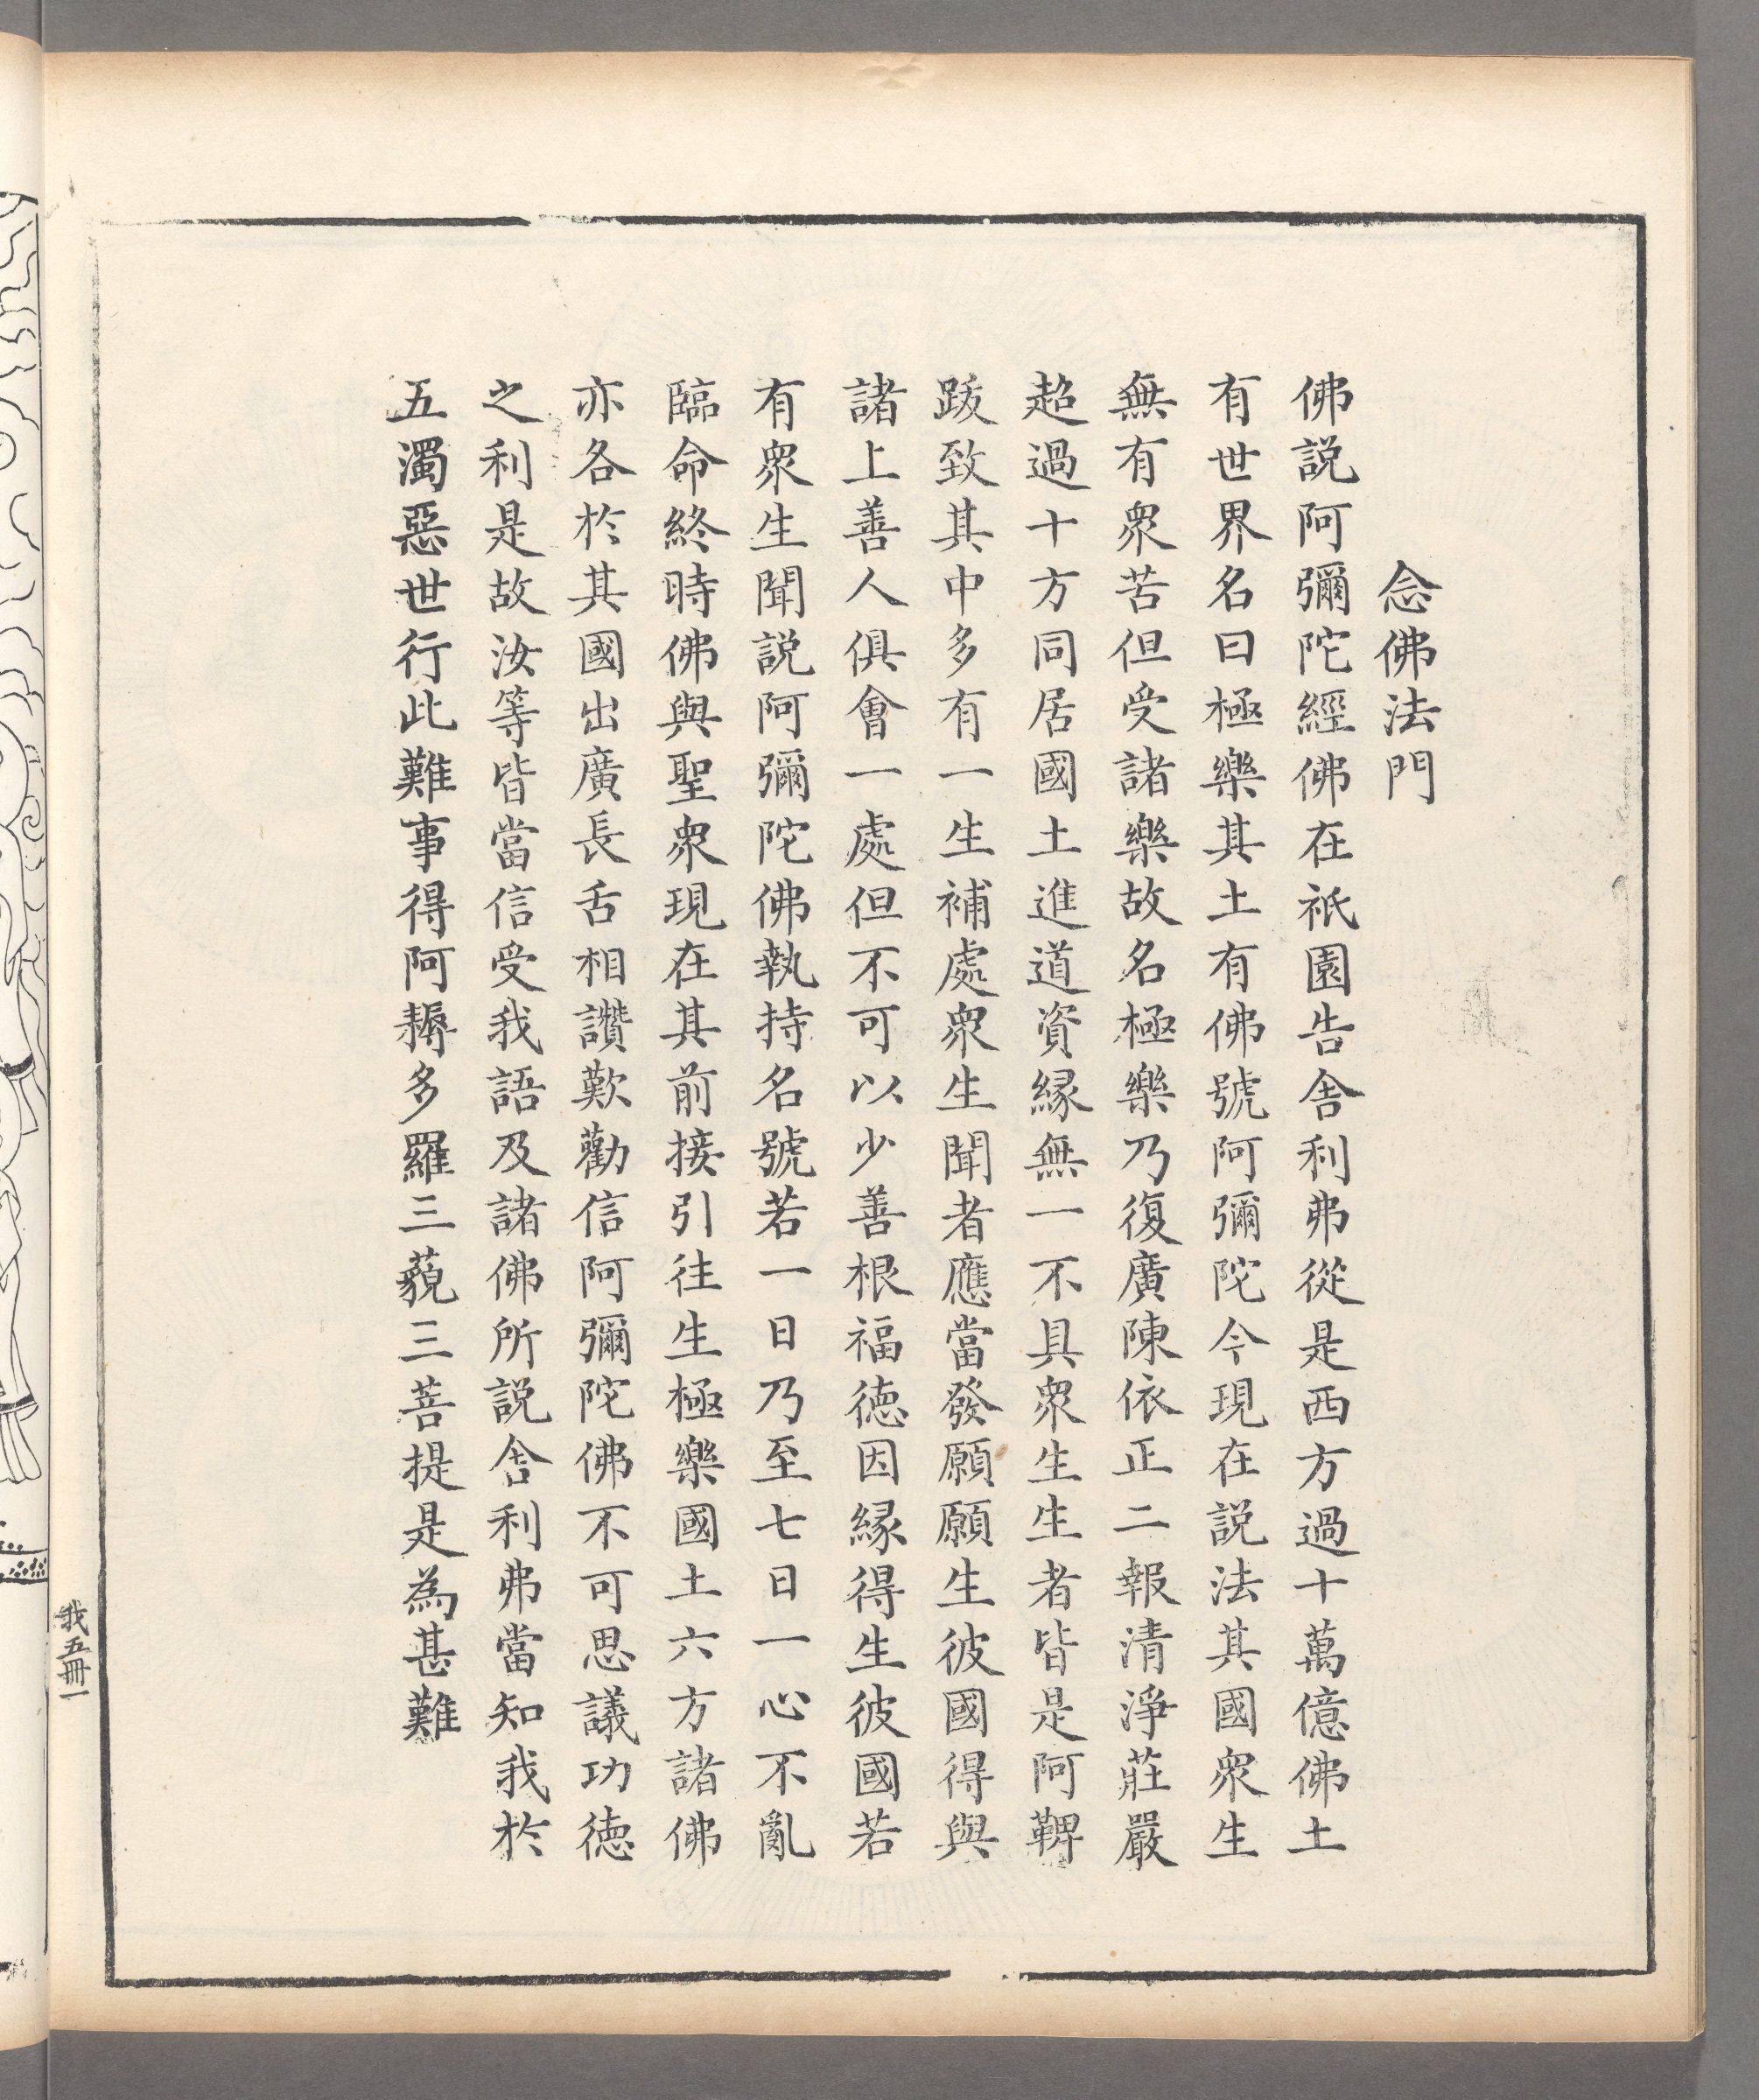 念佛法門
佛説阿彌陀經佛在祇園告舍利弗從是西方過十萬億佛土
有世界名曰極樂其土有佛號阿彌陀今現在説法其國衆生
無有衆苦但受諸樂故名極樂乃復廣陳依正二報清淨莊嚴
超過十方同居國土進道資縁無一不具衆生生者皆是阿鞞
跋致其中多有一生補處衆生聞者應當發願願生彼國得與
諸上善人俱會一處但不可以少善根福徳因縁得生彼國若
有衆生聞説阿彌陀佛執持名號若一日乃至七日一心不亂
臨命終時佛與聖衆現在其前接引往生極樂國土六方諸佛
亦各於其國出廣長舌相讚歎勸信阿彌陀佛不可思議功徳
之利是故汝等皆當信受我語及諸佛所説舍利弗當知我於
五濁惡世行此難事得阿耨多羅三藐三菩提是為甚難
我五冊一